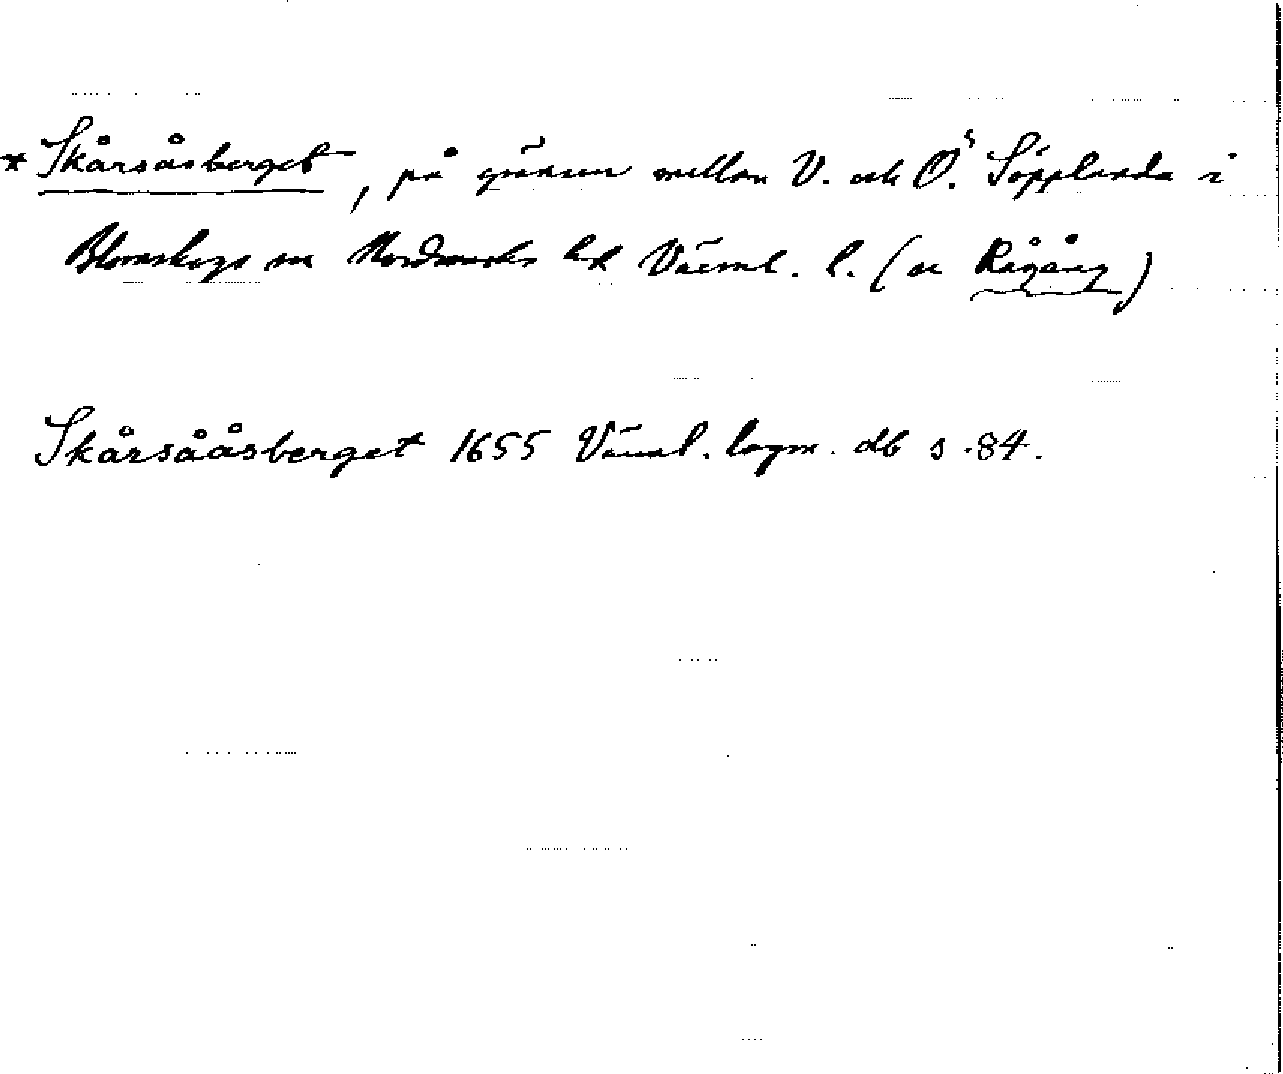 * Skårsåsberget, på gränsen mellan V. och Ö. Söpplanda i
Blomskogs sn Nordmarks hd Värml. l. (se Rågång)
Skårsååsberget 1655 Värml. lagm. db s. 84.